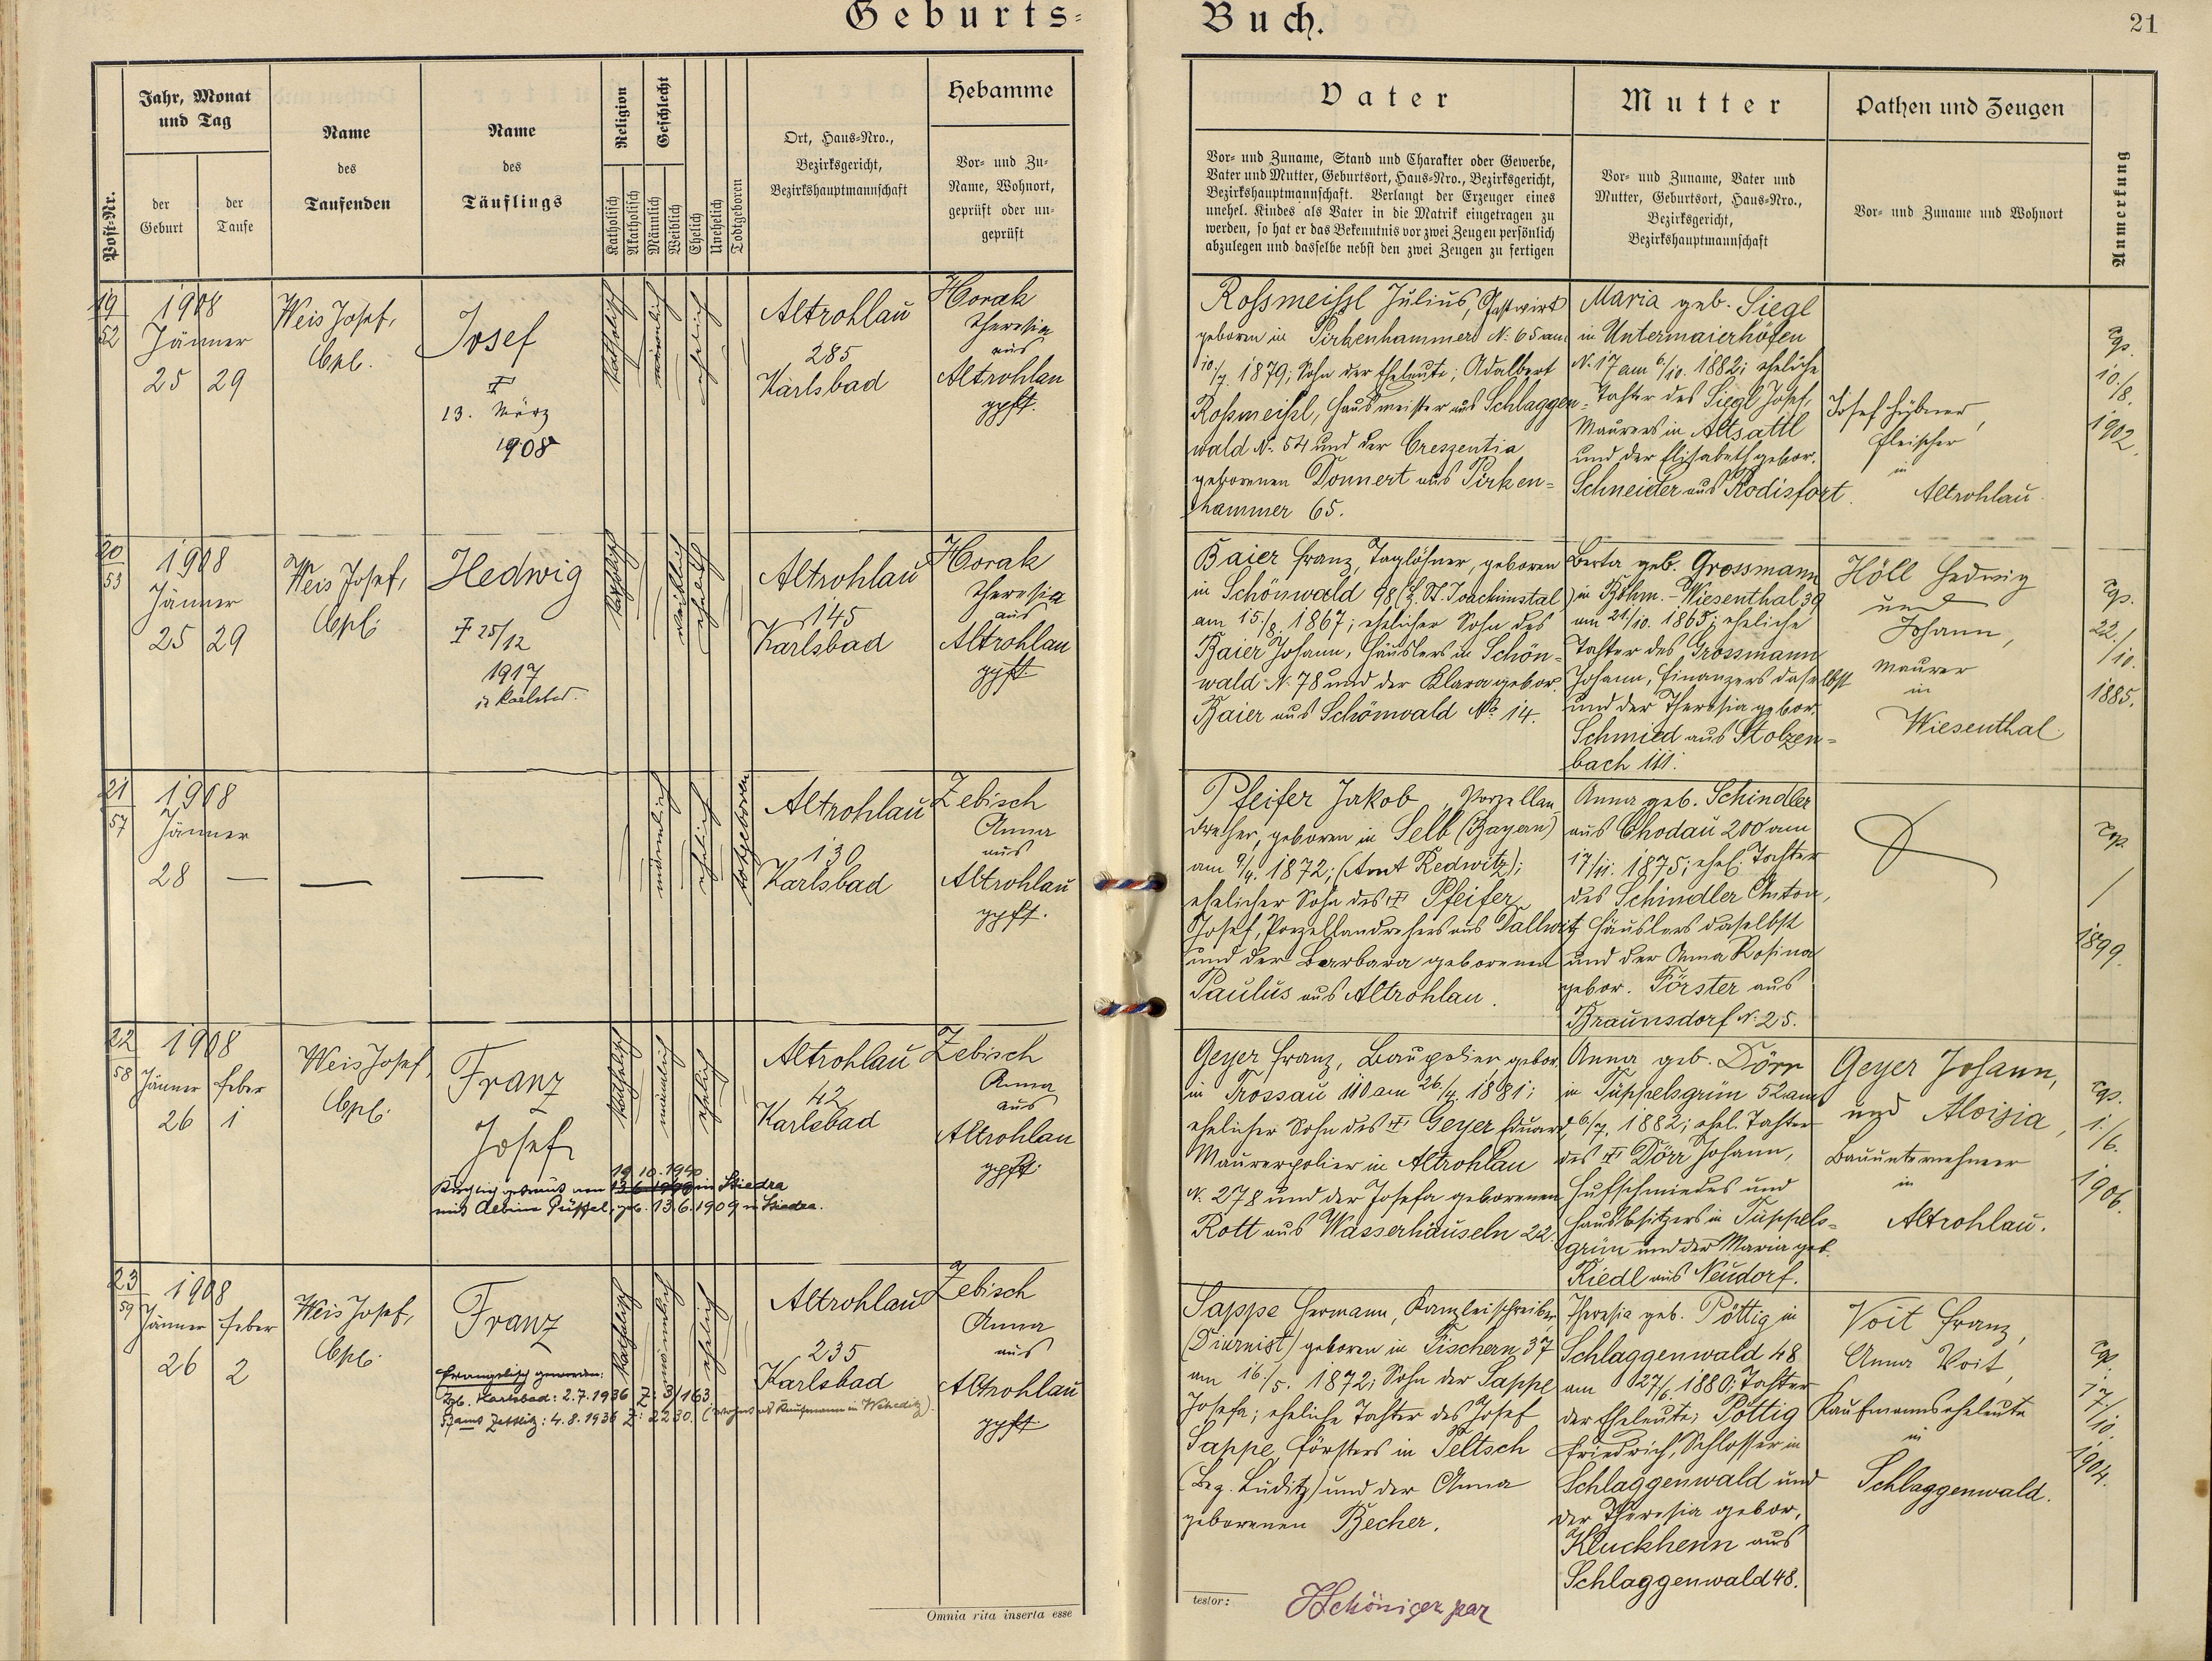 Geburts-
Buch.
21
Post-Nr.
Jahr, Monat
und Tag
der
Geburt
der
Taufe
Name
des
Taufenden
Name
des
Täuflings
Religion
Katholisch
Akatholisch
Geschlecht
Männlich
Weiblich
Ehelich
Unehelich
Todtgeboren
Ort, Haus-Nro.,
Bezirksgericht,
Bezirkshauptmannschaft
Hebamme
Vor- und Zu-
Name, Wohnort,
geprüft oder un-
geprüft
Vater
Vor- und Zuname, Stand und Charakter oder Gewerbe,
Vater und Mutter, Geburtsort, Haus-Nro., Bezirksgericht,
Bezirkshauptmannschaft. Verlangt der Erzeuger eines
unehel. Kindes als Vater in die Matrik eingetragen zu
werden, so hat er das Bekenntnis vor zwei Zeugen persönlich
abzulegen und dasselbe nebst den zwei Zeugen zu fertigen
Mutter
Vor- und Zuname, Vater und
Mutter, Geburtsort, Haus-Nro.,
Bezirksgericht,
Bezirkshauptmannschaft
Pathen und Zeugen
Vor- und Zuname und Wohnort
Anmerkung
19
52
1908
Jänner
25 29
Weis Josef,
Cpl.
Josef
13. März
1908
katholisch
männlich
ehelich
Altrohlau
285
Karlsbad
Horak
Theresia
aus
Altrohlau
gpft.
Rossmeissl Julius, Gastwirt
geboren in Pirkenhammer N: 65 am
10./7. 1879; Sohn der Eheleute; Adalbert
Rossmeissl, Hausmeister aus Schlaggen-
wald N: 54 und der Creszentia
geborenen Donnert aus Pirken-
hammer 65.
Maria geb. Siegl
in Untermaierhöfen
N. 17 am 6/10. 1882; eheliche
Tochter des Siegl Josef,
Maurers in Altsattl
und der Elisabeth gebor.
Schneider aus Rodisfort.
Josef Hübner,
Fleischer
in
Altrohlau
10./8.
1902.
20
53
1908
Jänner
25 29
Weis Josef,
Cpl.
Hedwig
25/12
1917
katholisch
weiblich
ehelich
Altrohlau
145
Karlsbad
Horak
Theresia
aus
Altrohlau
gpft
Baier Franz, Taglöhner, geboren
in Schönwald 98 (B. St. Joachimstal)
am 15./8. 1867; ehelicher Sohn des
Baier Johann, Häuslers in Schön-
wald N. 78 und der Klara gebor.
Baier aus Schönwald No 14.
Berta geb. Grossmann
in Böhm.-Wiesenthal 39
am 21./10. 1865; eheliche
Tochter des Grossmann
Johann, Finanzers daselbst
und der Theresia gebor.
Schmied aus Stolzen-
bach 111.
Höll Hedwig
und
Johann,
Maurer
in
Wiesenthal
22./10.
1885.
21
57
1908
Jänner
28 —
—
—
männlich
ehelich
totgeboren
Altrohlau
130
Karlsbad
Zebisch
Anna
aus
Altrohlau
gpft.
Pfeifer Jakob, Porzellan
dreher, geboren in Selb (Bayern)
am 9/4. 1872; (Amt Redwitz);
ehelicher Sohn des Pfeifer
Josef, Porzellandrehers aus Dallwitz
und der Barbara geborenen
Paulus aus Altrohlau.
Anna geb. Schindler
aus Chodau 200 am
17./11. 1875; ehel. Tochter
des Schindler Anton,
Häuslers daselbst
und der Anna Rosina
gebor. Förster aus
Braunsdorf N. 25.
1899.
22
58
1908
Jänner Feber
26 1
Weis Josef,
Cpl.
Franz
Josef
19.10.1940
Kirchlich getraut am 13.6.1940 in Stiedra
mit Albine Püssel, geb. 13.6.1909 in Stiedra.
katholisch
männlich
ehelich
Altrohlau
42
Karlsbad
Zebisch
Anna
aus
Altrohlau
gpft.
Geyer Franz, Baupolier gebor.
in Trossau 110 am 26./4. 1881;
ehelicher Sohn des Geyer Eduard,
Maurerpolier in Altrohlau
N. 278 und der Josefa geborenen
Rott aus Wasserhäuseln 22.
Anna geb. Dörr
in Tüppelsgrün 52 am
6/7. 1882; ehel. Tochter
des Dörr Johann,
Hufschmiedes und
Hausbesitzers in Tüppels-
grün und der Maria geb.
Riedl aus Neudorf.
Geyer Johann,
und Aloisia,
Bauunternehmer
in
Altrohlau.
1./6.
1906.
23
59
1908
Jänner Feber
26 2
Weis Josef,
Cpl.
Franz
Evangelisch geworden:
Karlsbad: 2.7.1936 Z: 3/163
Pfarramt Zettlitz: 4.8.1936 Z: 2230. (wohnt als Kaufmann in Weheditz).
katholisch
männlich
ehelich
Altrohlau
235
Karlsbad
Zebisch
Anna
aus
Altrohlau
gpft
Sappe Hermann, Kanzleischreiber
(Diurnist) geboren in Fischern 37
am 16./5. 1872; Sohn der Sappe
Josefa; eheliche Tochter des Josef
Sappe, Försters in Teltsch
(Bez. Luditz) und der Anna
geborenen Becher.
Theresia geb. Pöttig in
Schlaggenwald 48
am 27/6. 1880; Tochter
der Eheleute; Pöttig
Friedrich, Schlosser in
Schlaggenwald und
der Theresia gebor.
Kluckhenn aus
Schlaggenwald 48.
Voit Franz,
Anna Voit,
Kaufmannseheleute
in
Schlaggenwald.
17./10.
1904.
Omnia rita inserta esse
testor: